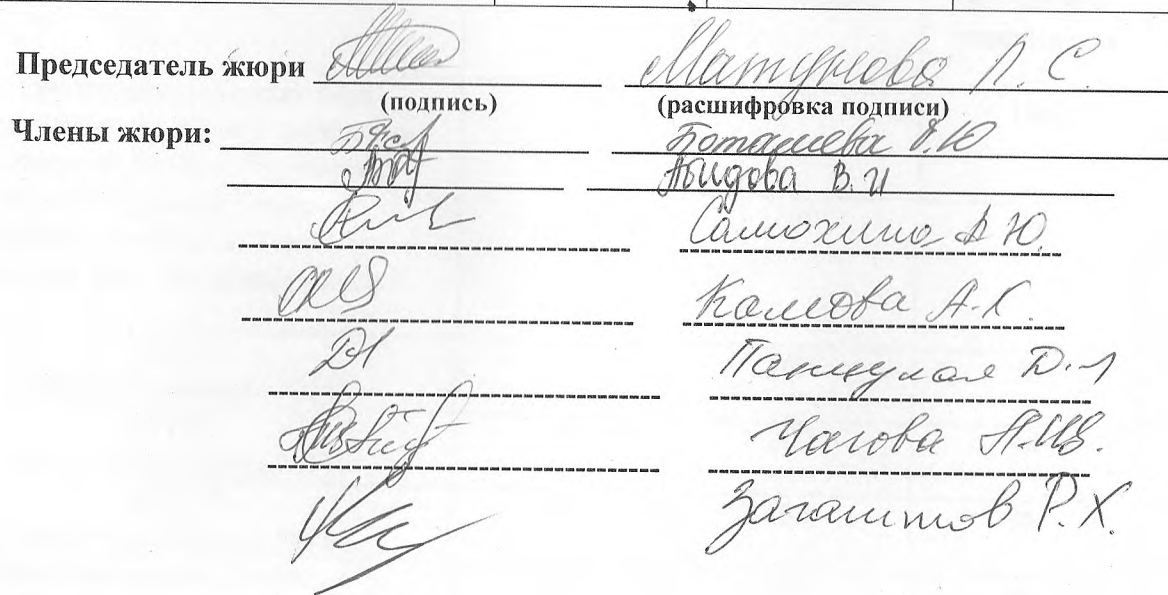 Председатель жюри Матунова Л. С
(подпись) (расшифровка подписи)
Члены жюри: Боташева Е.Ю
Абидова В. И
Самохина А Ю.
Камова А.Х.
Панцулая Д.Л
Чагова А.Ш.
Загаштов Р.Х.